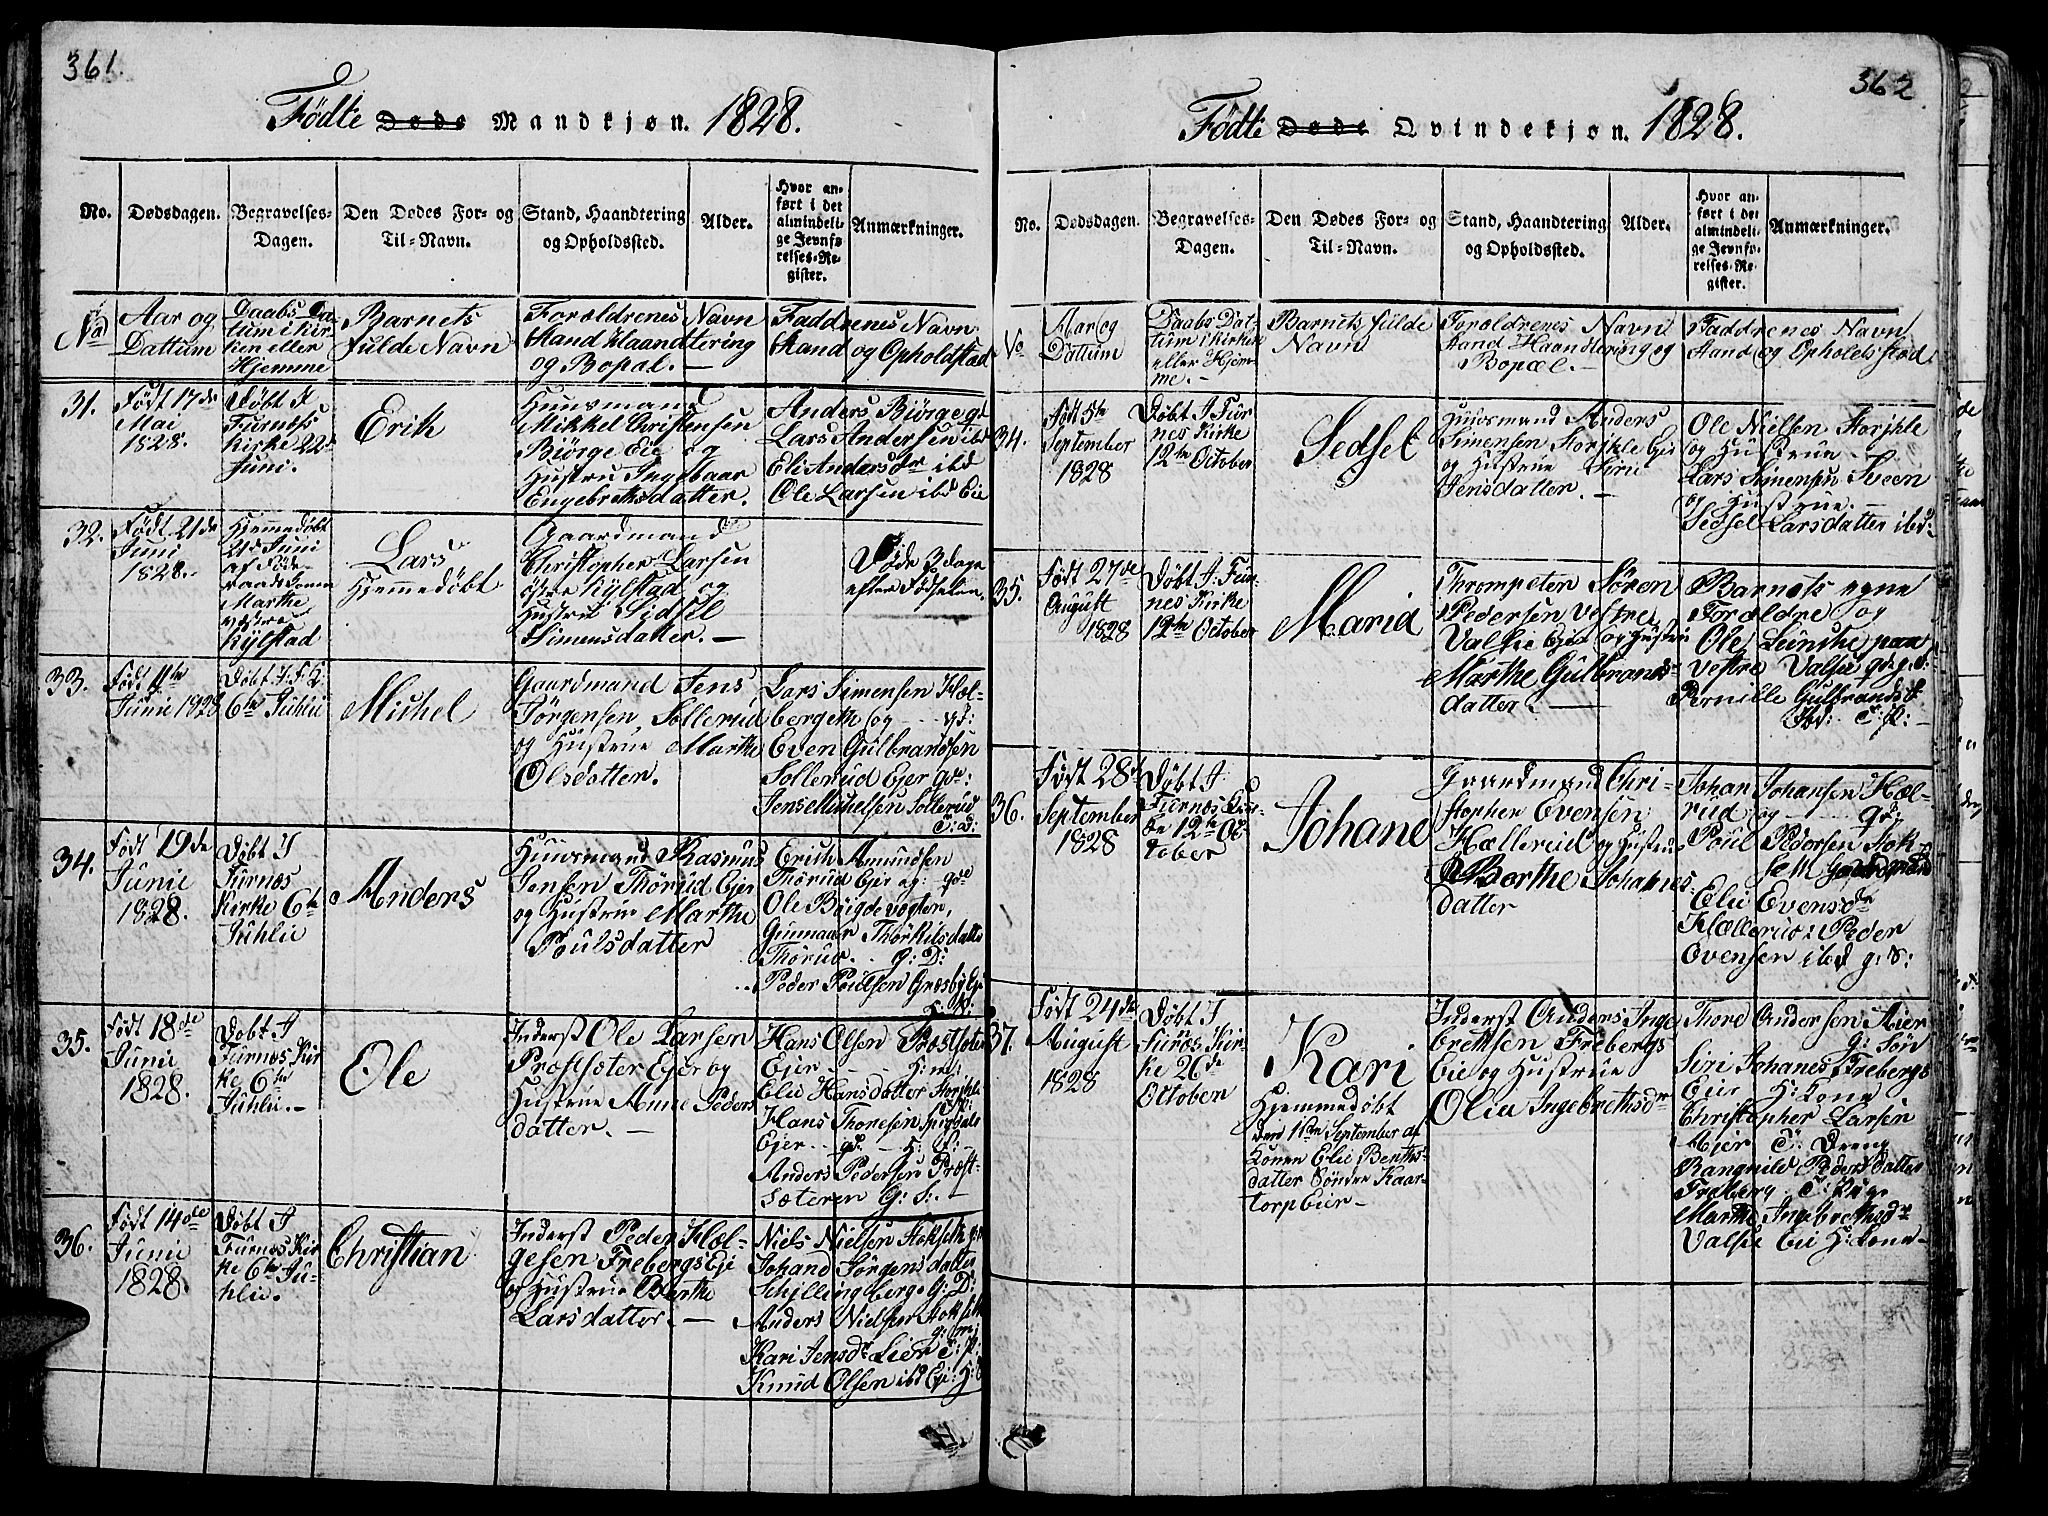 361.
Fødte Døde Mandkjøn. 1828.
No.
Dødsdagen.
Begravelses-
Dagen.
Den Dødes For- og
Til-Navn.
Stand, Haandtering
og Opholdssted.
Alder.
Hvor an-
ført i det
almindeli-
ge Jevnfø-
relses-Re-
gister.
Anmærkninger.
No
Aar og
Dattum
Daabs Da-
tum i Kir-
ken eller
Hjemme
Barnets
fulde Navn
Forældrenes Navn
Stand Haandtering
og Bopæl. —
Faddrenes Navn
Stand og Opholdstæd
31.
Født 17de
Mai
1828.
Døbt I
Furnæss
Kirke 22d
Juni.
Erik
Huusmand
Mikkel Christensen
Biørge Eie og
Hustru Ingebaar
Engebrethsdatter.
Anders Biørge gd
Lars Andersen ibd
Eli Andersdr ibd
Ole Larsen ibd Eie
32.
Født 21de
Juni
1828.
Hjemedøbt
21d Juni
af
Marthe
Kylstad
Lars
Hjemmedøbt
Gaardmand
Christopher Larsen
østre Kylstad og
Hustru Sidsel
Simensdatter. —
Døde 3 Dage
efter Fødselen.
33.
Født 11te
Junii 1828
Døbt I. F. K.
6te Juhlii
Michel
Gaardmand Jens
Jørgensen Sollerud
og Hustrue Marthe
Olsdatter.
Lars Simensen Hæl-
bergeth og
Even Gulbrandsen
Sollerud Ejer
Jens Michelsen Sollerud
34.
Født 19de
Junii
1828.
Døbt I
Furnæs
Kirke 6te
Juhlii
Anders
Huusmand Rasmus
Jensen Thorud Ejer
og Hustrue Marthe
Poulsdatter
Erich Amundsen
Thorud Ejer og
Ole Bøigdevogten,
Gunnaar Thorkilsdatter
Thorud. g: D:
Peder Poulsen Græsby Ejer
35.
Født 18de
Junii
1828.
Døbt I
Furnæs Kir
ke 6te
Juhlii.—
Ole
Inderst Ole Larsen
Præstsæter Ejer og
Hustrue Anne Peders
datter. —
Hans Olsen Præstsæter
Ejer
Elie Hansdatter
Hans Thoresen
Ejer
Anders Pedersen Præst-
sæteren G: S: —
36.
Født 14de
Junii
1828.
Døbt I
Furnæs Kir
ke 6te Ju-
hlii.
Christian
Inderst Peder Hæl-
gesen Frebergs Eje
og Hustrue Berthe
Larsdatter. —
Niels Nielsen Stokseth
Johand Jørgensdatter
Schjellingberg G: D:
Anders Nielsen Stokseth
Kari Jensdr Lier
Knud Olsen ibd Eje:
362
Fødte Døde Qvindekjøn. 1828.
No.
Dødsdagen.
Begravelses-
Dagen.
Den Dødes For- og
Til-Navn.
Stand, Haandtering
og Opholdssted.
Alder.
Hvor an-
ført i det
almindeli
ge Jevnfø-
relses-Re-
gister.
Anmærkninger.
No
Aar og
Dattum
Daabs Dat-
tum i Kirken
eller Hjem-
me. -
Barnets fulde
Navn
Forældrenes Navn
Stand Haandtering og
Bopæl. -
Faddrenes Navn
Stand og Opholdsstæd.
34.
Født 5te
September
1828
Døbt I Fur
nes Kirke
12te October
Sedsel
Huusmand Anders
Simensen Storjhle Eie
og Hustrue Siru
Jensdatter. —
Ole Nielsen Storjhle
og Hustrue
Lars Simensen Sveen
og Hustrue. —
Sedsel Larsdatter ibd.
35.
Født 27de
August
1828
Døbt I: Fur-
nes Kirke
12te October
Maria
Thrompeter Søren
Pedersen Vestre
Valsie Ejer og Hustru
Marthe Gulbrands-
datter. —
Barnets egne
Forældre og
Ole paa
vestre Valsie
Pernille Gulbrandsd.
Ibd:
36.
Født 28de
September
1828
Døbt I
Furnes Kir
ke 12te Oc
tober
Johane
Gaardmand Chri-
stopher Evensen
Hællerud og Hustrue
Berthe Johannes
datter
Johan Johansen Hæl-
rud og
Poul Pedersen Stok-
seth
Elie Evensdr
Hællerud: Peder
Evensen ibd g: S:
37.
Født 24de
August
1828
Døbt I
Furnæs Kir
ke 26de
October
Kari
Hjemmedøbt
den 11te September af
Konen Elie Benths-
datter Søndre Kaar-
torp Eier –
Inderst Anders Inge
brethsen Frebergs
Eie og Hustrue
Olia Ingebrethsdr
Thore Andersen Aier
g: Søn
Siri Johanes Frebergs
Eie H: Kone
Christopher Larsen
Aier T: Dreng
Rangnild Pedersdatter
Freberg T: Pige
Marthe Ingebrethsdr
Valsie Eie H: Kone –